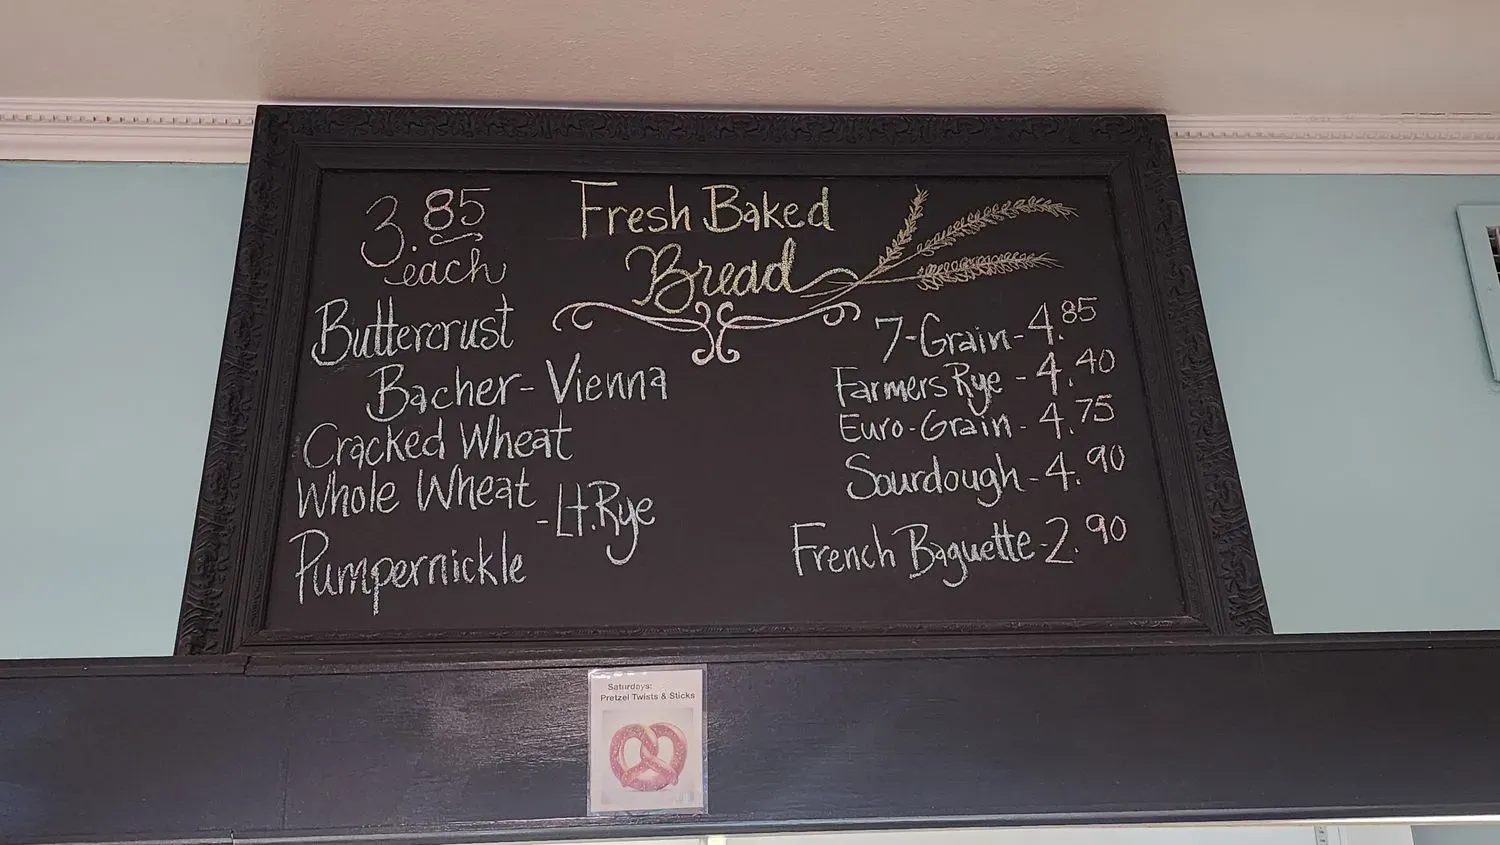 Fresh Baked
Bread
3.85
each
Buttercrust
Bacher-Vienna
Cracked Wheat
Whole Wheat
-Lt.Rye
Pumpernickle
7-Grain-4.85
Farmers Rye - 4.40
Euro-Grain - 4.75
Sourdough - 4.90
French Baguette-2.90
Saturdays:
Pretzel Twists & Sticks